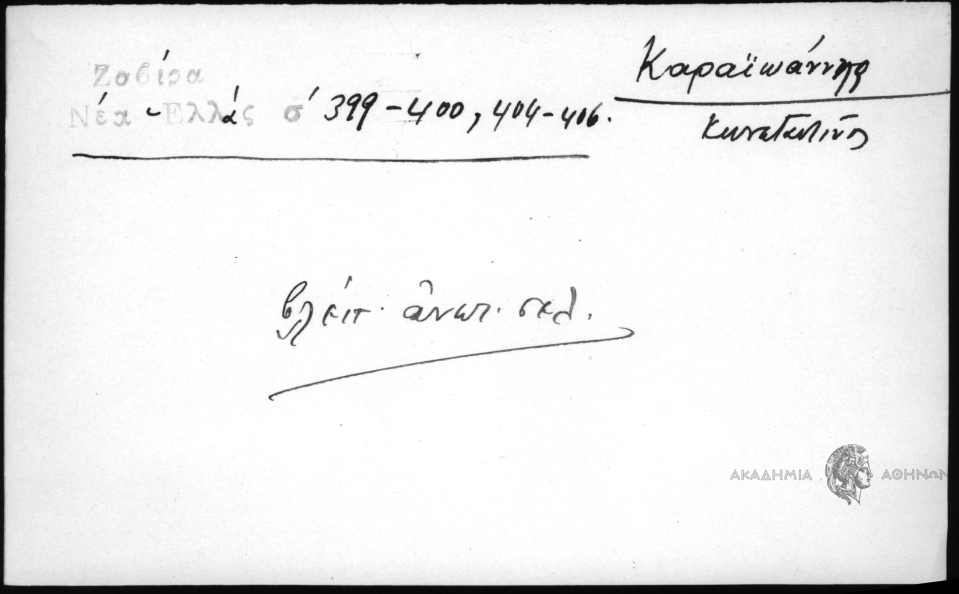 Ζαβίρα
Νέα - Ελλάς σ' 399-400, 404-406.
Καραϊωάννης
Κωνσταντίνος
βλέπ. ἄνωτ. σελ.
ΑΚΑΔΗΜΙΑ ΑΘΗΝΩΝ